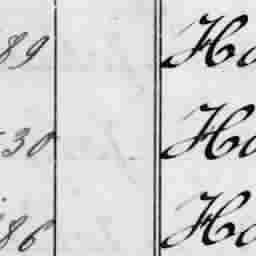 89 Ho
30 Ho
86 Ho